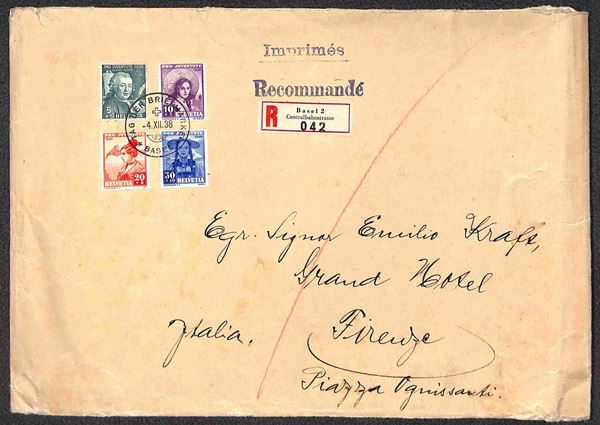 Imprimés
Recommandé
R
Basel 2
Centralbahnstrasse
042
PRO JUVENTUTE 1938
5
HELVETIA
PRO JUVENTUTE
10
HELVETIA
TAG DER BRIEFMARKE
-4.XII.38
BASEL
PRO JUVENTUTE
20
HELVETIA
PRO JUVENTUTE
30
HELVETIA
Egr. Signor Emilio Kraft,
Grand Hotel
Italia.
Firenze
Piazza Ognissanti.